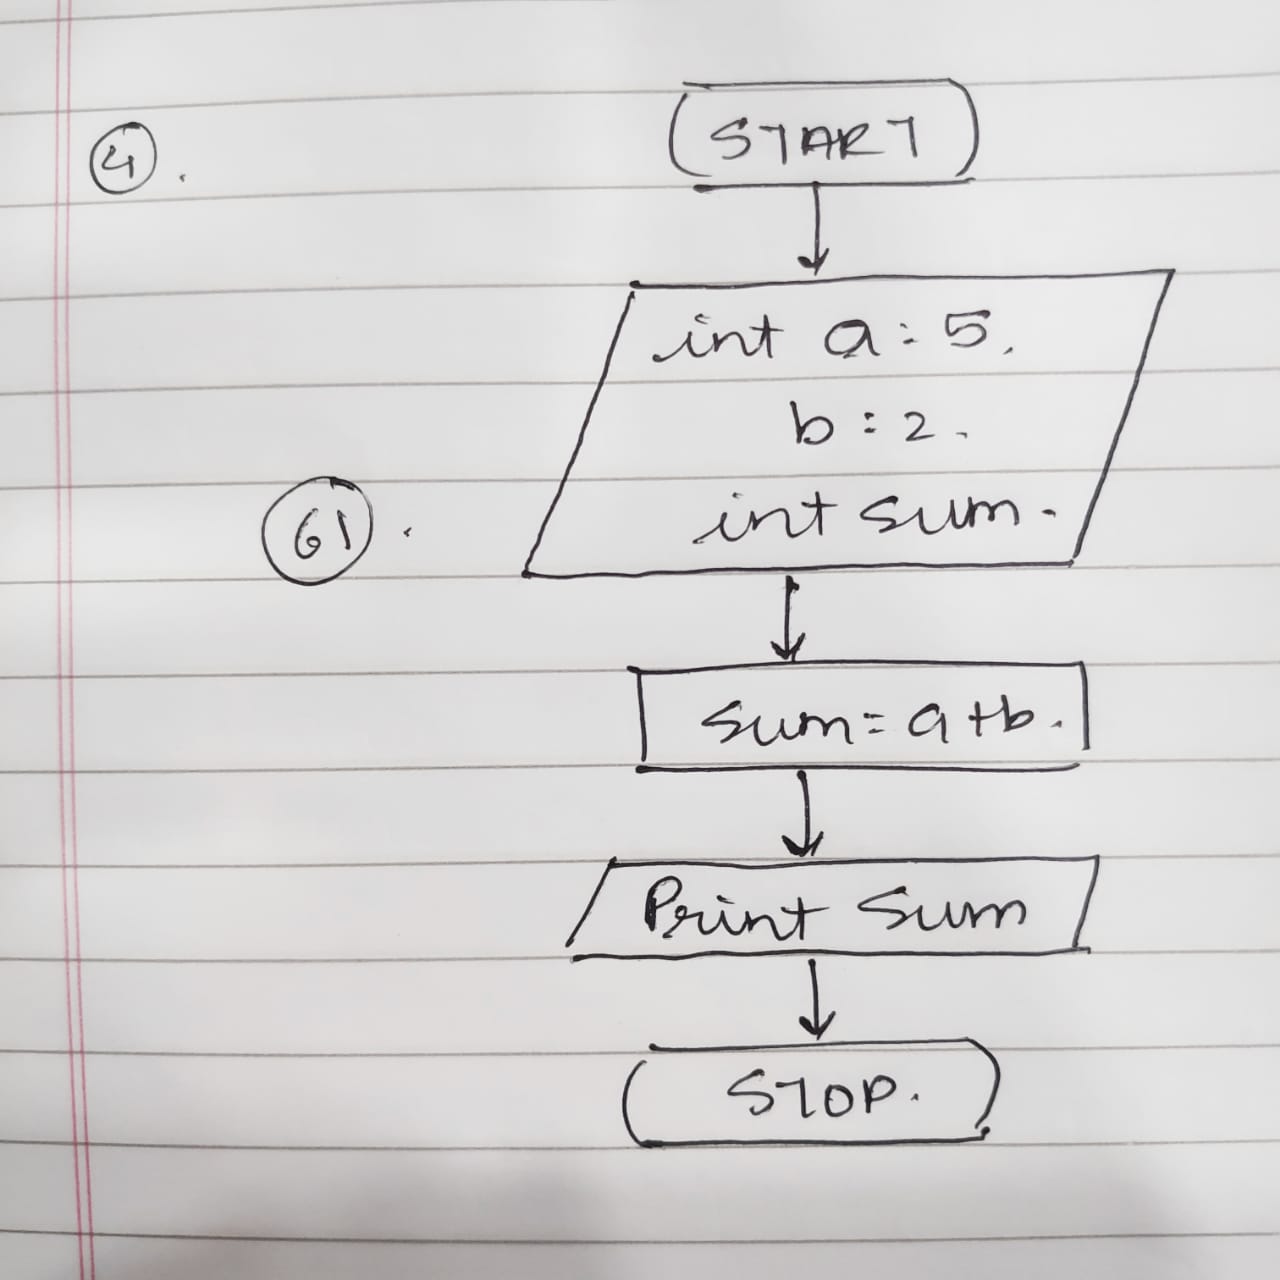 4.
START
int a = 5.
b = 2.
int sum.
61.
sum = a+b.
Print Sum
STOP.